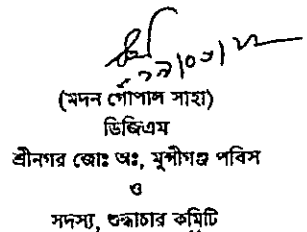 (মদন গোঁপাল সাহা)
ডিজিএম
শ্রীনগর জোঃ অঃ, মুন্সীগঞ্জ পবিস
ও
সদস্য, শুদ্ধাচার কমিটি